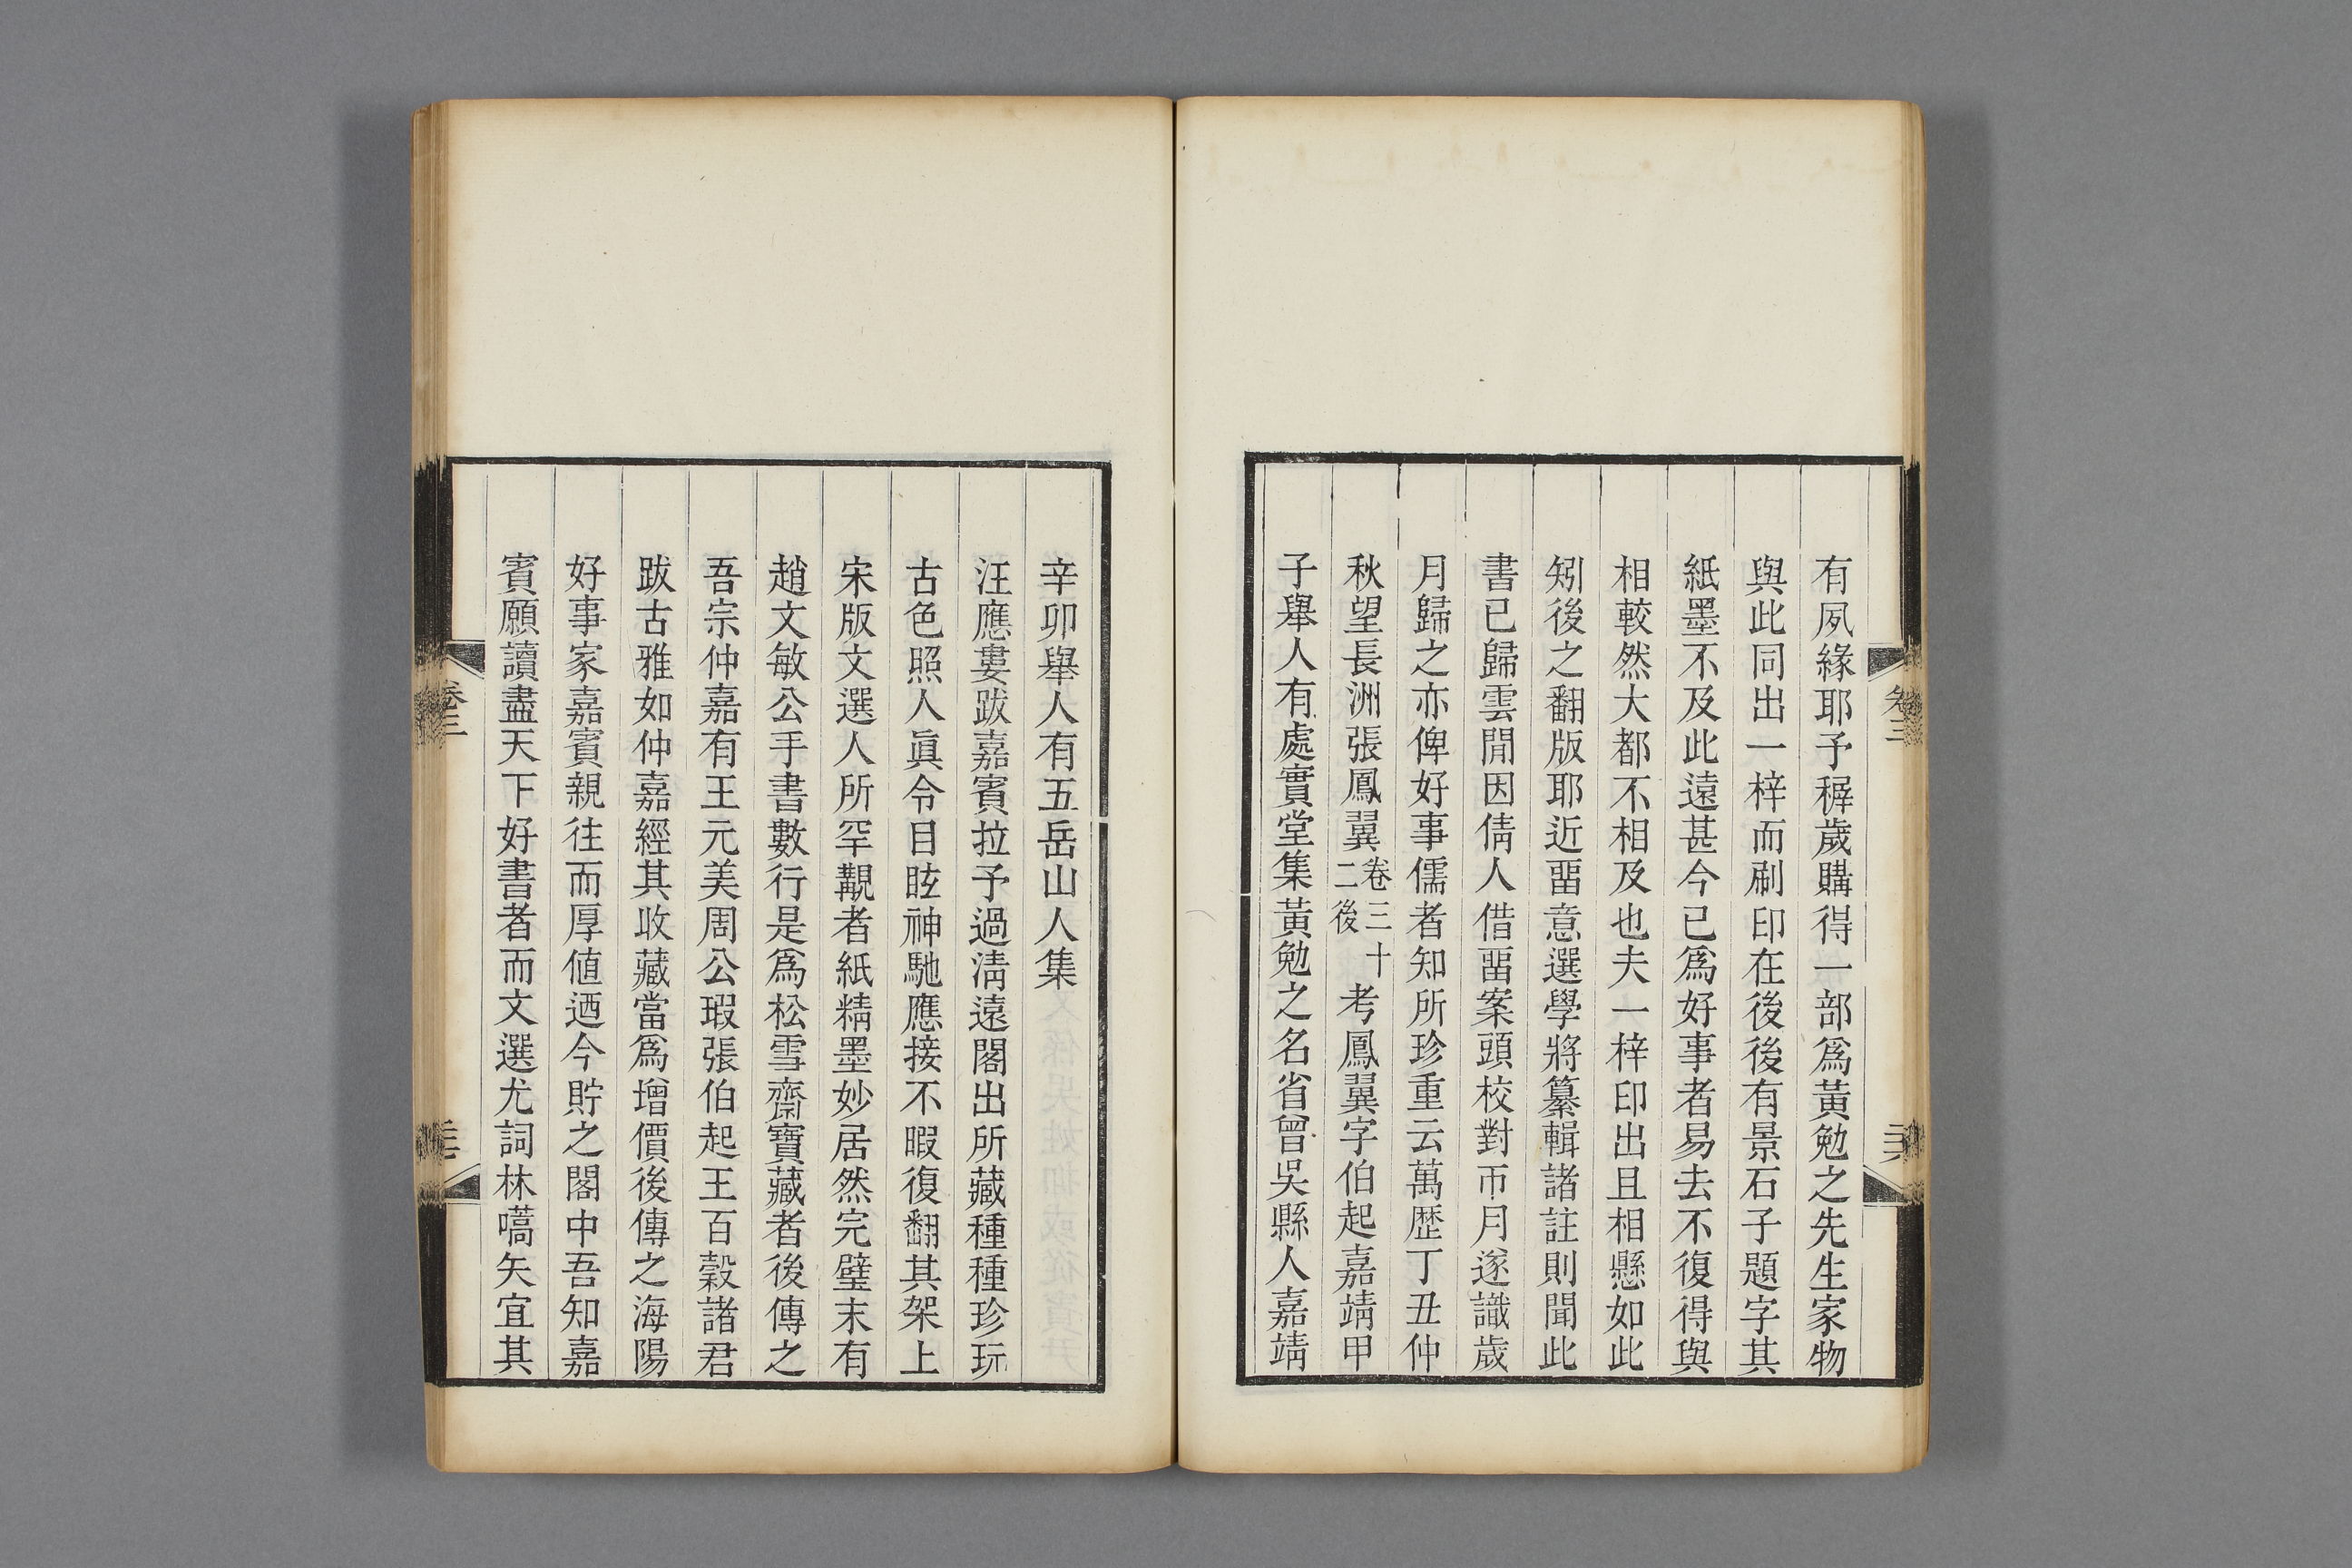 有夙緣耶予穉歲購得一部爲黃勉之先生家物
與此同出一梓而刷印在後後有景石子題字其
紙墨不及此遠甚今已爲好事者易去不復得與
相較然大都不相及也夫一梓印出且相懸如此
矧後之翻版耶近畱意選學將纂輯諸註則聞此
書已歸雲閒因倩人借畱案頭校對帀月遂識歲
月歸之亦俾好事儒者知所珍重云萬歷丁丑仲
秋望長洲張鳳翼卷三十二後考鳳翼字伯起嘉靖甲
子舉人有處實堂集黃勉之名省曾吳縣人嘉靖
卷三
三六
辛卯舉人有五岳山人集
汪應婁跋嘉賓拉予過淸遠閣出所藏種種珍玩
古色照人眞令目眩神馳應接不暇復翻其架上
宋版文選人所罕覯者紙精墨妙居然完璧末有
趙文敏公手書數行是爲松雪齋寶藏者後傳之
吾宗仲嘉有王元美周公瑕張伯起王百穀諸君
跋古雅如仲嘉經其收藏當爲增價後傳之海陽
好事家嘉賓親往而厚値迺今貯之閣中吾知嘉
賓願讀盡天下好書者而文選尤詞林嚆矢宜其
卷三